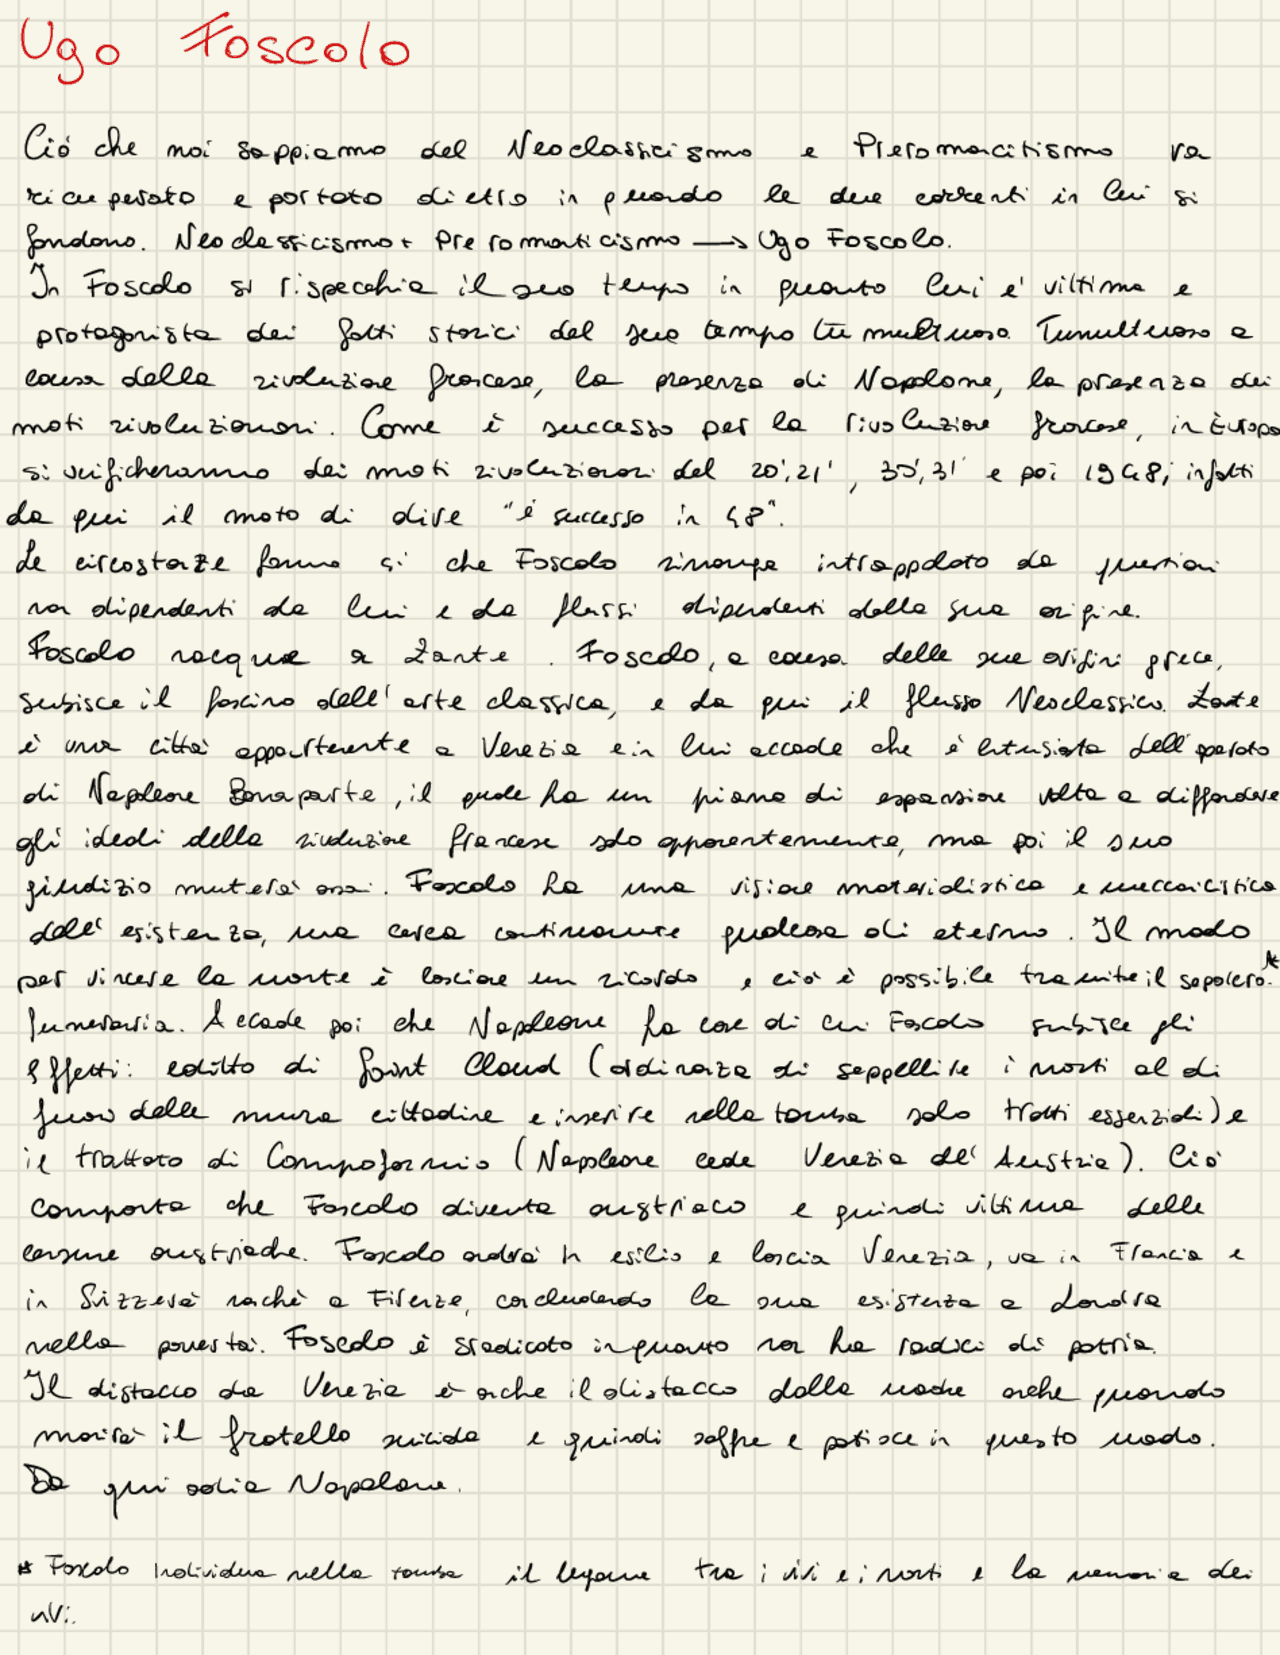 Ugo Foscolo
Ciò che noi sappiamo del Neoclassicismo e Preromacitismo va
ricuperato e portato dietro in quando le due correnti in lui si
fondono. Neoclassicismo + Preromanticismo → Ugo Foscolo.
In Foscolo si rispecchia il suo tempo in quanto lui è vittima e
protagonista dei fatti storici del suo tempo tumultuoso. Tumultuoso a
causa della rivoluzione francese, la presenza di Napolone, la presenza dei
moti rivoluzionari. Come è successo per la rivoluzione francese, in Europa
si verificheranno dei moti rivoluzionari del 20',21', 30',31' e poi 1948; infatti
da qui il moto di dire "è successo in 48".
Le circostanze fanno si che Foscolo rimanga intrappolato da questioni
non dipendenti da lui e da flussi dipendenti dalla sua origine.
Foscolo nacque a Zante. Foscolo, a causa delle sue origini grece,
subisce il fascino dell'arte classica, e da qui il flusso Neoclassico. Zante
è una città appartenente a Venezia e in lui accade che è entusiasta dell'operato
di Napoleone Bonaparte, il quale ha un piano di espansione volta a diffondere
gli ideali della rivoluzione francese solo apparentemente, ma poi il suo
giudizio muterà. Foscolo ha una visione materialistica e meccanicistica
dell'esistenza, ma cerca qualcosa di eterno. Il modo
per vincere la morte è lasciare un ricordo e ciò è possibile tramite il sepolcro.*
funeraria. Accade poi che Napoleone fa cose di cui Foscolo subisce gli
effetti: editto di Saint Cloud (ordinanza di seppellire i morti al di
fuori delle mura cittadine e inserire nella tomba solo tratti essenziali) e
il trattato di Campoformio (Napoleone cede Venezia all'Austria). Ciò
comporta che Foscolo diventa austriaco e quindi vittima delle
censure austriache. Foscolo andrà in esilio e lascia Venezia, va in Francia e
in Svizzera nachè a Firenze, concludendo la sua esistenza a Londra
nella povertà. Foscolo è sradicato in quanto non ha radici di patria.
Il distacco da Venezia è anche il distacco dalla madre anche quando
morirà il fratello suicida e quindi soffre e patisce in questo modo.
Da qui odia Napoleone.
* Foscolo individua nella tomba il legame tra i vivi e i morti e la memoria dei
vivi.